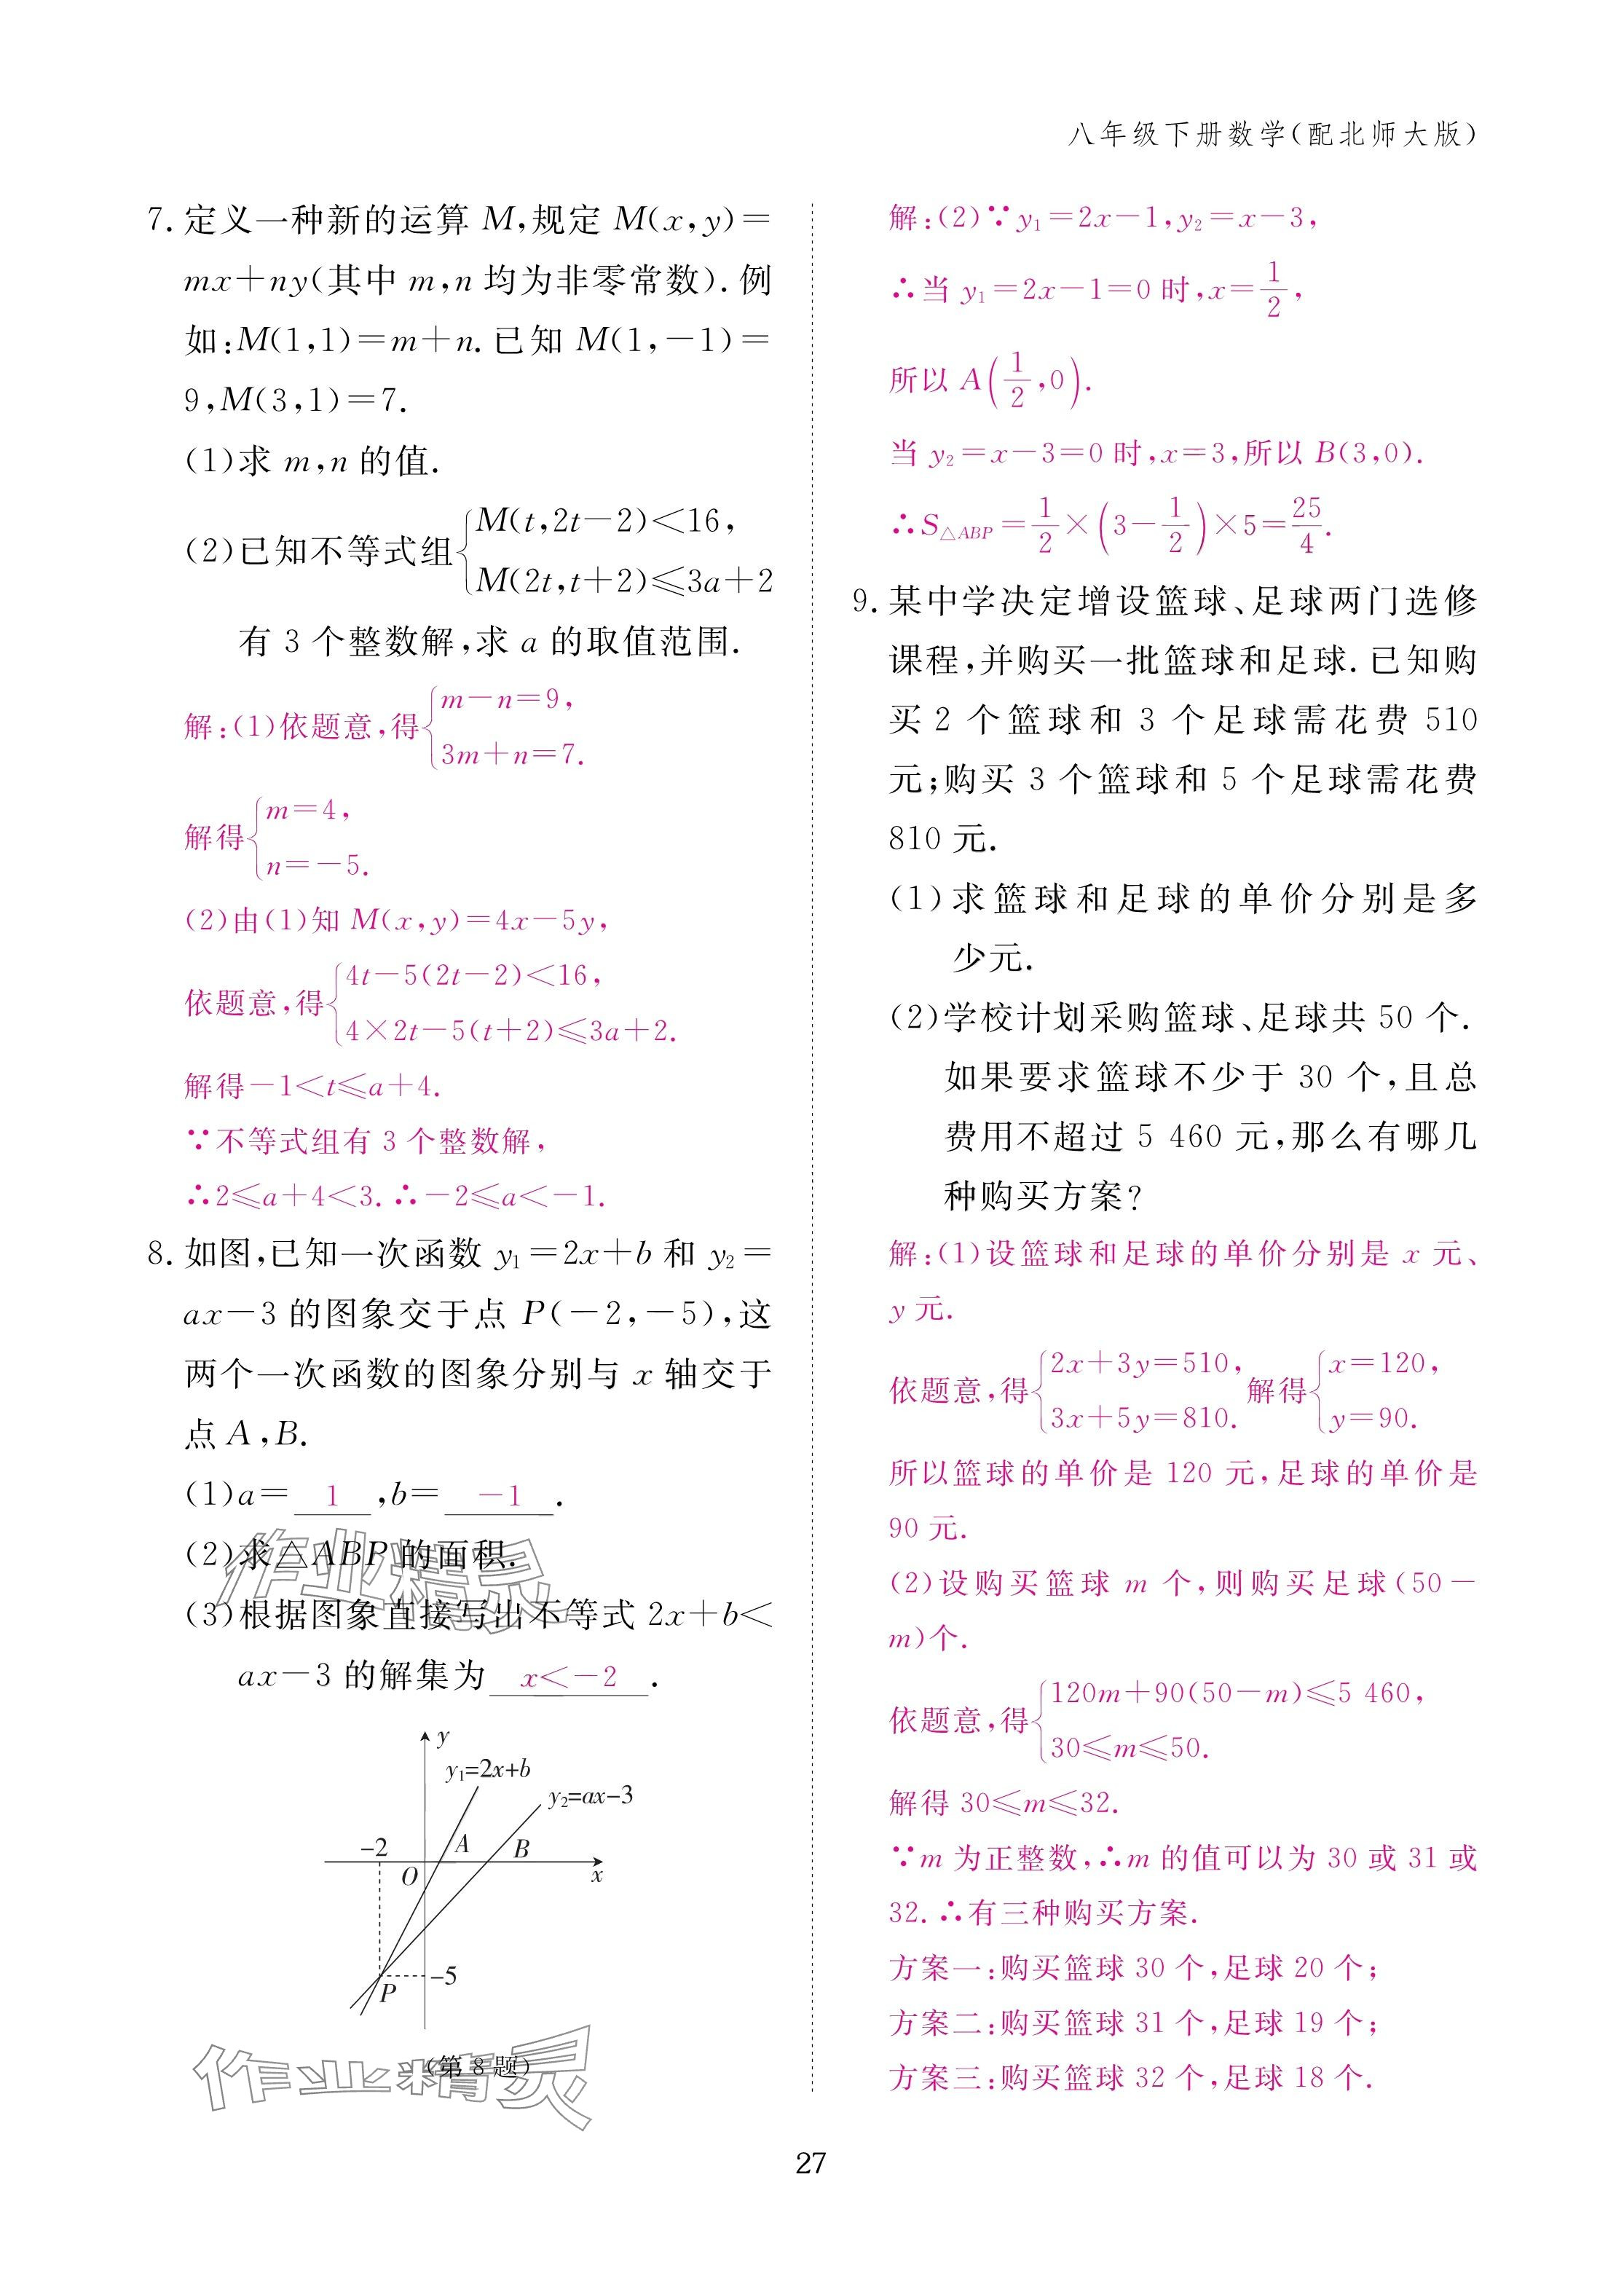 八年级下册数学(配北师大版)
7. 定义一种新的运算 M,规定 M(x,y)=
mx+ny(其中 m,n 均为非零常数). 例
如:M(1,1)=m+n. 已知 M(1,-1)=
9,M(3,1)=7.
(1)求 m,n 的值.
(2)已知不等式组{M(t,2t-2)<16,
M(2t,t+2)≤3a+2
有 3 个整数解,求 a 的取值范围.
解:(1)依题意,得{m-n=9,
3m+n=7.
解得{m=4,
n=-5.
(2)由(1)知 M(x,y)=4x-5y,
依题意,得{4t-5(2t-2)<16,
4×2t-5(t+2)≤3a+2.
解得-1<t≤a+4.
∵不等式组有 3 个整数解,
∴2≤a+4<3. ∴-2≤a<-1.
8. 如图,已知一次函数 y₁=2x+b 和 y₂=
ax-3 的图象交于点 P(-2,-5),这
两个一次函数的图象分别与 x 轴交于
点 A,B.
(1)a= 1 ,b= -1 .
(2)求△ABP 的面积.
(3)根据图象直接写出不等式 2x+b<
ax-3 的解集为 x<-2 .
y
y₁=2x+b
y₂=ax-3
-2
A
B
O
x
-5
P
(第 8 题)
作业精灵
作业精灵
解:(2)∵y₁=2x-1,y₂=x-3,
∴当 y₁=2x-1=0 时,x=1/2,
所以 A(1/2,0).
当 y₂=x-3=0 时,x=3,所以 B(3,0).
∴S△ABP=1/2×(3-1/2)×5=25/4.
9. 某中学决定增设篮球、足球两门选修
课程,并购买一批篮球和足球. 已知购
买 2 个篮球和 3 个足球需花费 510
元;购买 3 个篮球和 5 个足球需花费
810 元.
(1)求篮球和足球的单价分别是多
少元.
(2)学校计划采购篮球、足球共 50 个.
如果要求篮球不少于 30 个,且总
费用不超过 5 460 元,那么有哪几
种购买方案?
解:(1)设篮球和足球的单价分别是 x 元、
y 元.
依题意,得{2x+3y=510,
3x+5y=810. 解得{x=120,
y=90.
所以篮球的单价是 120 元,足球的单价是
90 元.
(2)设购买篮球 m 个,则购买足球(50-
m)个.
依题意,得{120m+90(50-m)≤5 460,
30≤m≤50.
解得 30≤m≤32.
∵m 为正整数,∴m 的值可以为 30 或 31 或
32. ∴有三种购买方案.
方案一:购买篮球 30 个,足球 20 个;
方案二:购买篮球 31 个,足球 19 个;
方案三:购买篮球 32 个,足球 18 个.
27